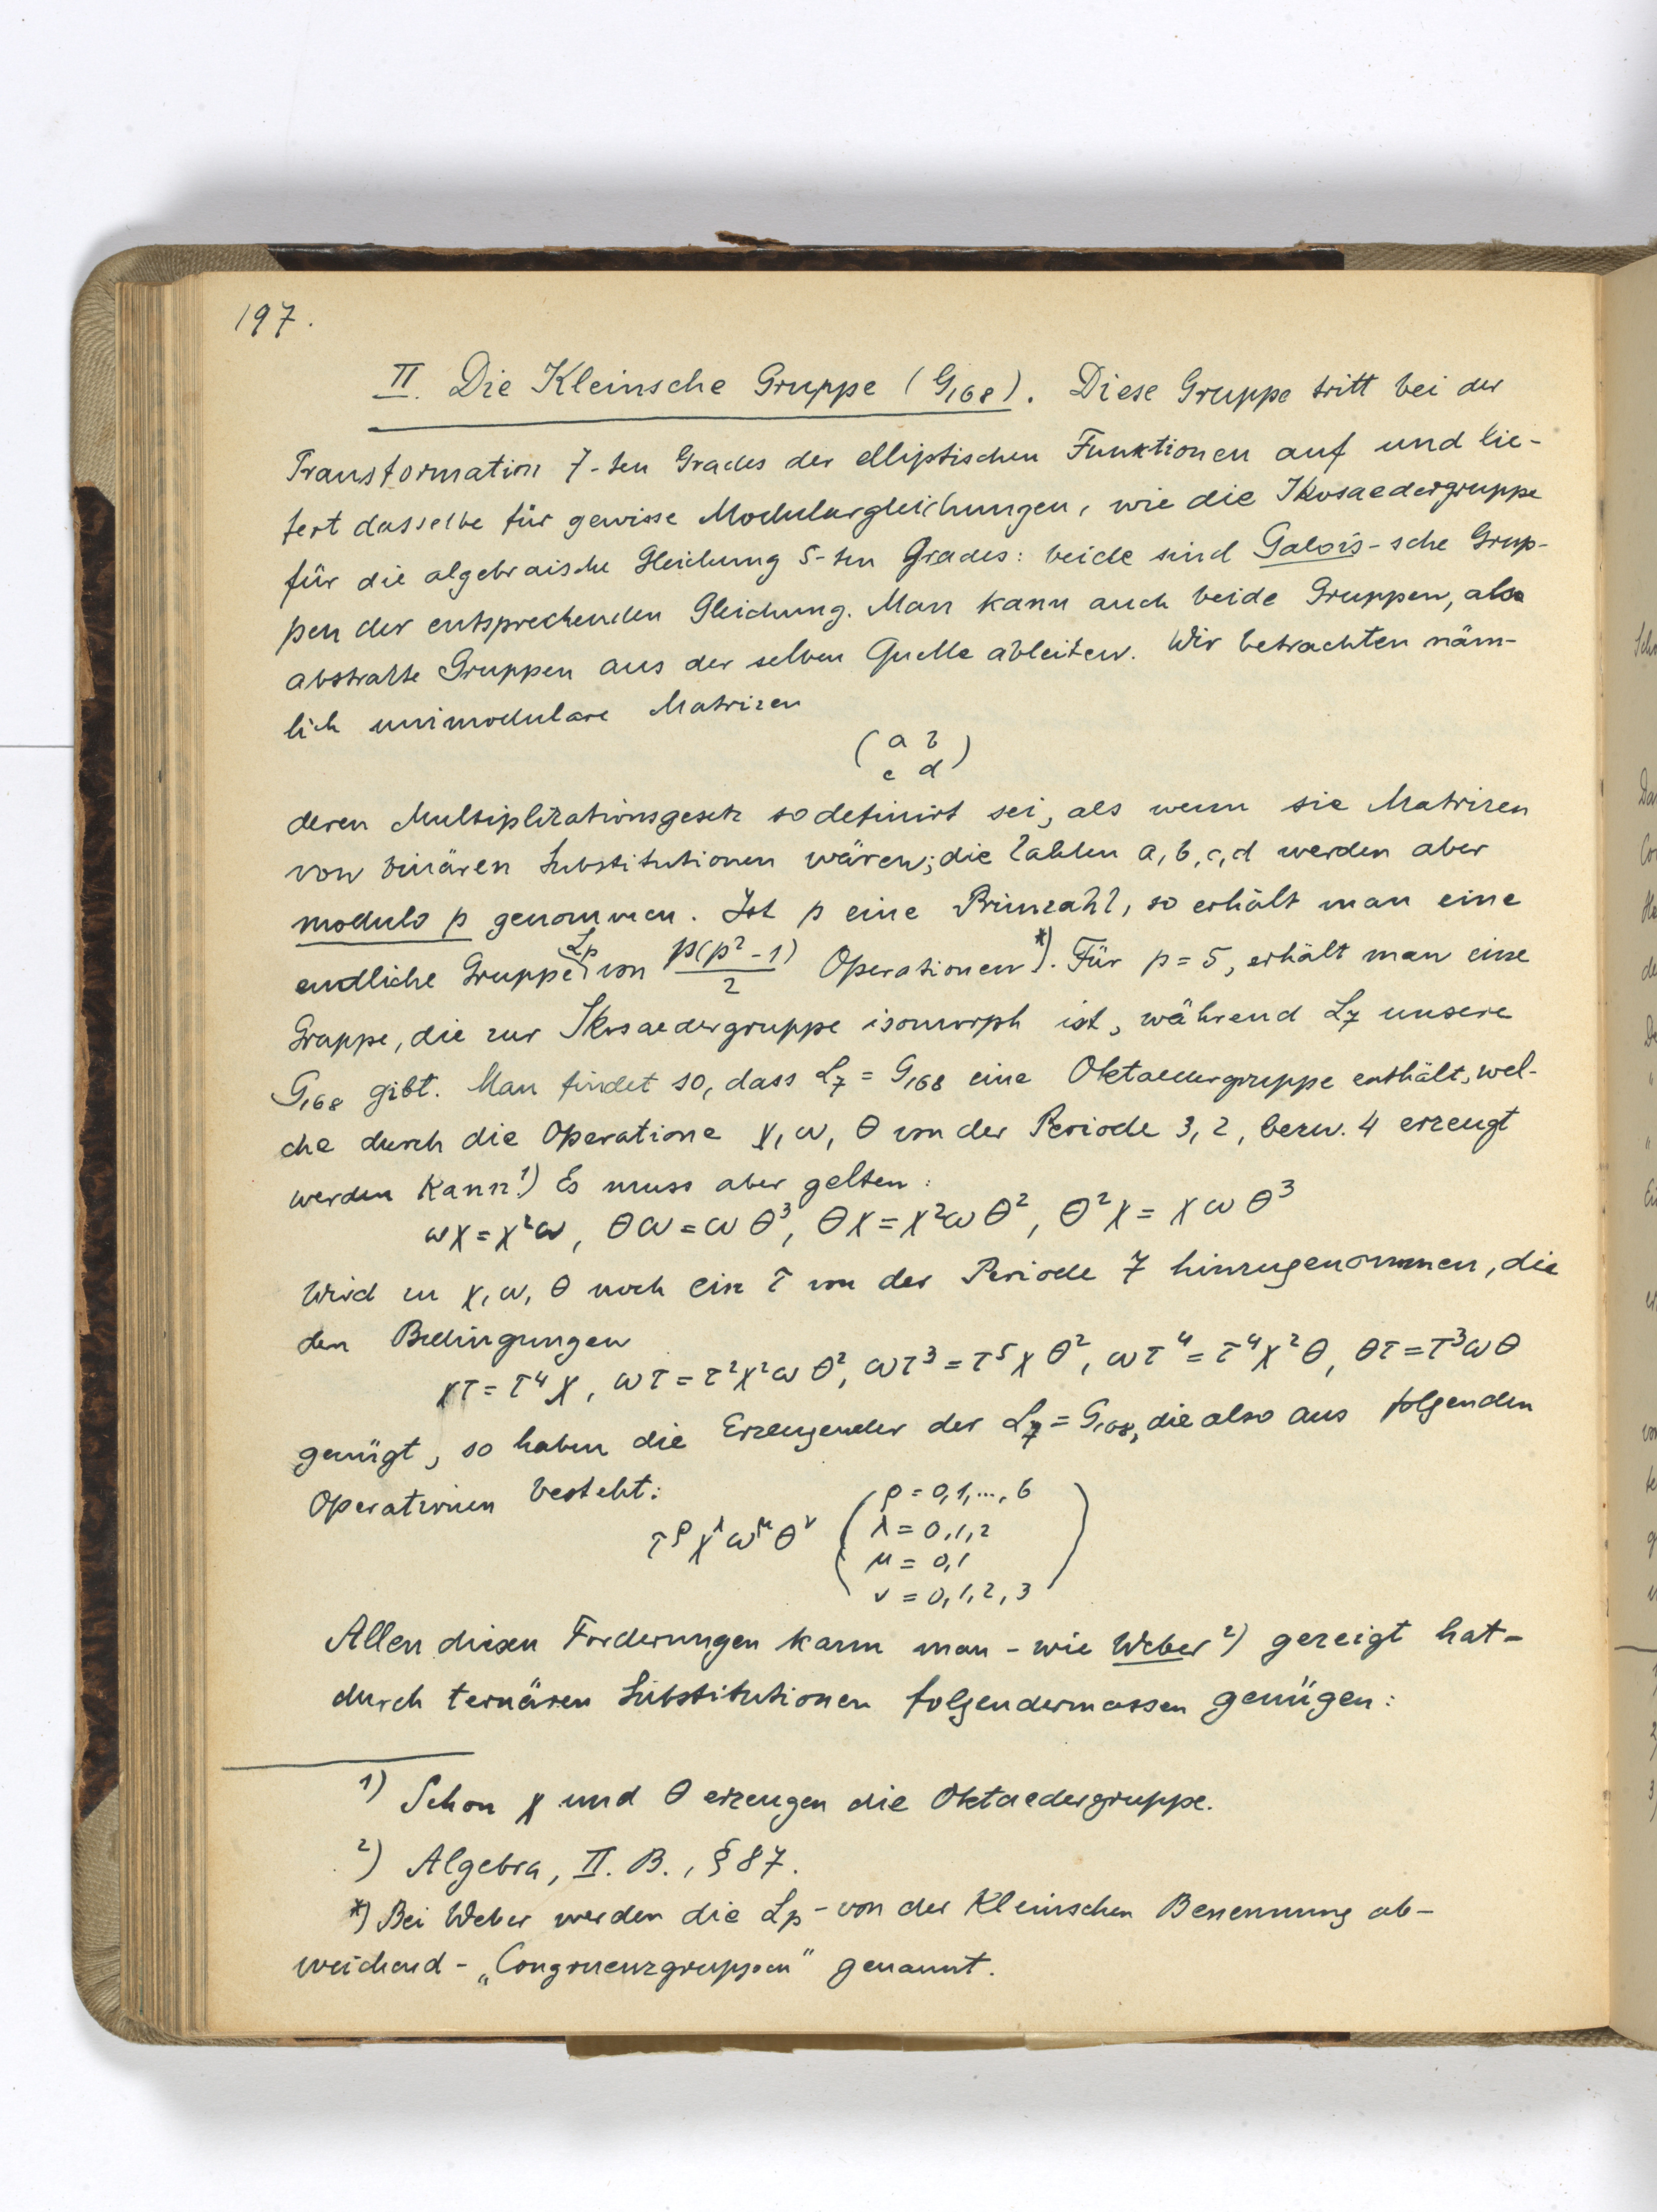 197.
II. Die Kleinsche Gruppe (G₁₆₈). Diese Gruppe tritt bei der
Transformation 7-ten Grades der elliptischen Funktionen auf und lie-
fert dasselbe für gewisse Modulargleichungen, wie die Ikosaedergruppe
für die algebraische Gleichung 5-ten Grades: beide sind Galois-sche Grup-
pen der entsprechenden Gleichung. Man kann auch beide Gruppen, als
abstrakte Gruppen aus der selben Quelle ableiten. Wir betrachten näm-
lich unimodulare Matrizen
( a b )
c d
deren Multiplikationsgesetz so definirt sei, als wenn sie Matrizen
von binären Substitutionen wären; die Zahlen a, b, c, d werden aber
modulo p genommen. Ist p eine Primzahl, so erhält man eine
endliche Gruppe Lₚ von p(p²-1)/2 Operationen*). Für p = 5, erhält man eine
Gruppe, die zur Ikosaedergruppe isomorph ist, während L₇ unsere
G₁₆₈ gibt. Man findet so, dass L₇ = G₁₆₈ eine Oktaedergruppe enthält, wel-
che durch die Operatione χ, ω, θ von der Periode 3, 2, bezw. 4 erzeugt
werden kann¹) Es muss aber gelten:
ωχ = χ²ω, θω = ωθ³, θχ = χ²ωθ², θ²χ = χωθ³
Wird zu χ, ω, θ noch ein τ von der Periode 7 hinzugenommen, die
den Bedingungen
χτ = τ⁴χ, ωτ = τ²χ²ωθ², ωτ³ = τ⁵χθ², ωτ⁴ = τ⁴χ²θ, θτ = τ³ωθ
genügt, so haben die Erzeugender der L₇ = G₁₆₈, die also aus folgenden
Operationen besteht:
τ^ρ χ^λ ω^μ θ^ν ( ρ = 0, 1, ..., 6
λ = 0, 1, 2
μ = 0, 1
ν = 0, 1, 2, 3 )
Allen diesen Forderungen kann man - wie Weber²) gezeigt hat -
durch ternären Substitutionen folgendermassen genügen:
¹) Schon χ und θ erzeugen die Oktaedergruppe.
²) Algebra, II. B., § 87.
*) Bei Weber werden die Lₚ - von der Kleinschen Benennung ab-
weichend - „Congruenzgruppen" genannt.